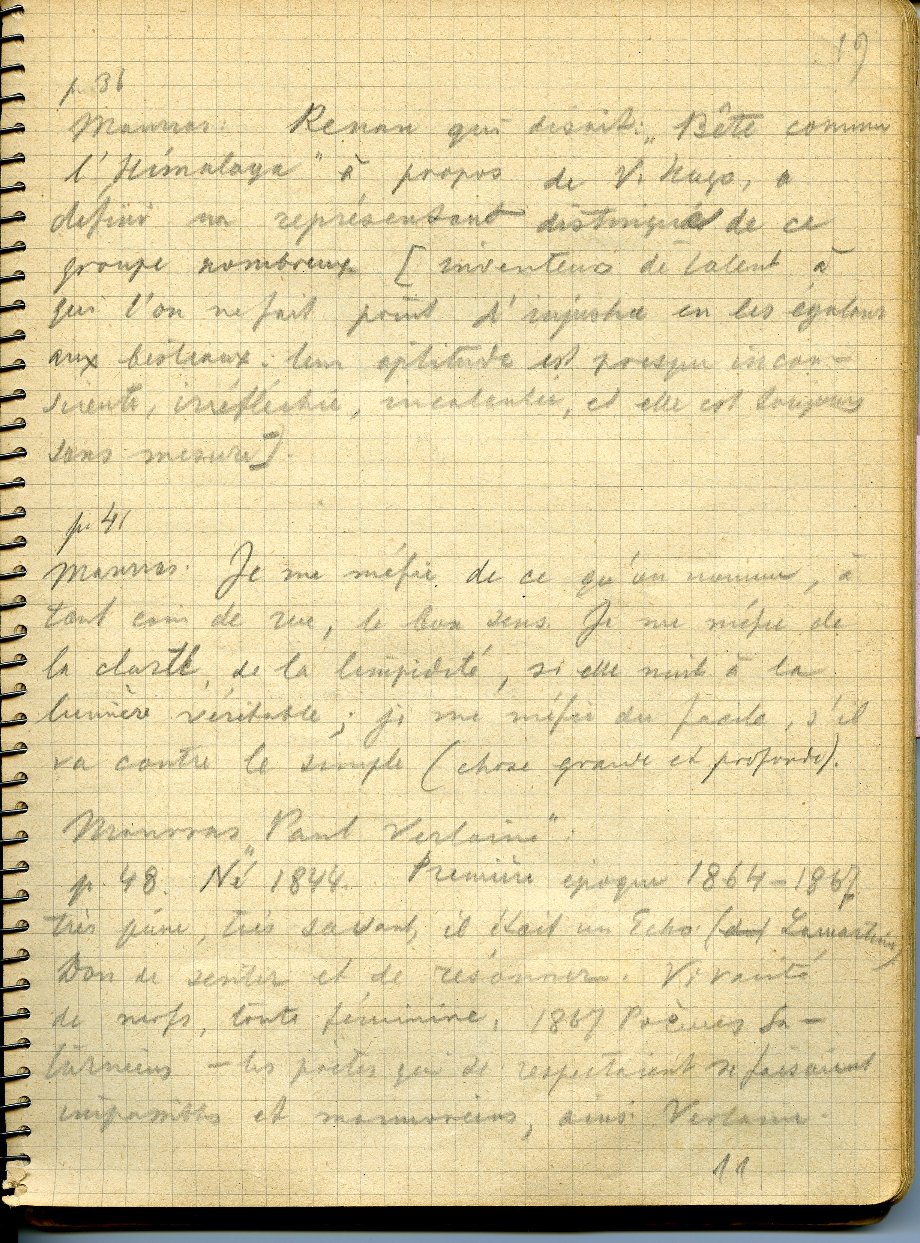 19
p. 36
Maurras: Renan qui disait: „Bête comme
l'Himalaya" à propos de V. Hugo, a
défini un représentant distingué de ce
groupe nombreux [inventeurs de talent à
qui l'on ne fait point d'injustice en les égalant
aux bestiaux: leur aptitude est presque incon-
sciente, irréfléchie, et elle est toujours
sans mesure].
p. 41
Maurras. Je me méfie de ce qu'on nomme, à
tout coin de rue, le bon sens. Je me méfie de
la clarté, de la limpidité, si elle nuit à la
lumière véritable; je me méfie du facile, s'il
va contre le simple (chose grande et profonde).
Maurras „Paul Verlaine":
p. 48. Né 1844. Première époque 1864-1867
très jeune, très savant, il était un Echo (de Lamartine)
Don de sentir et de résonner. Vivacité
de nerfs, toute féminine. 1867 Poèmes Sa-
turniens - les poètes qui se respectaient se faisaient
impassibles et marmoréens, ainsi Verlaine.
11